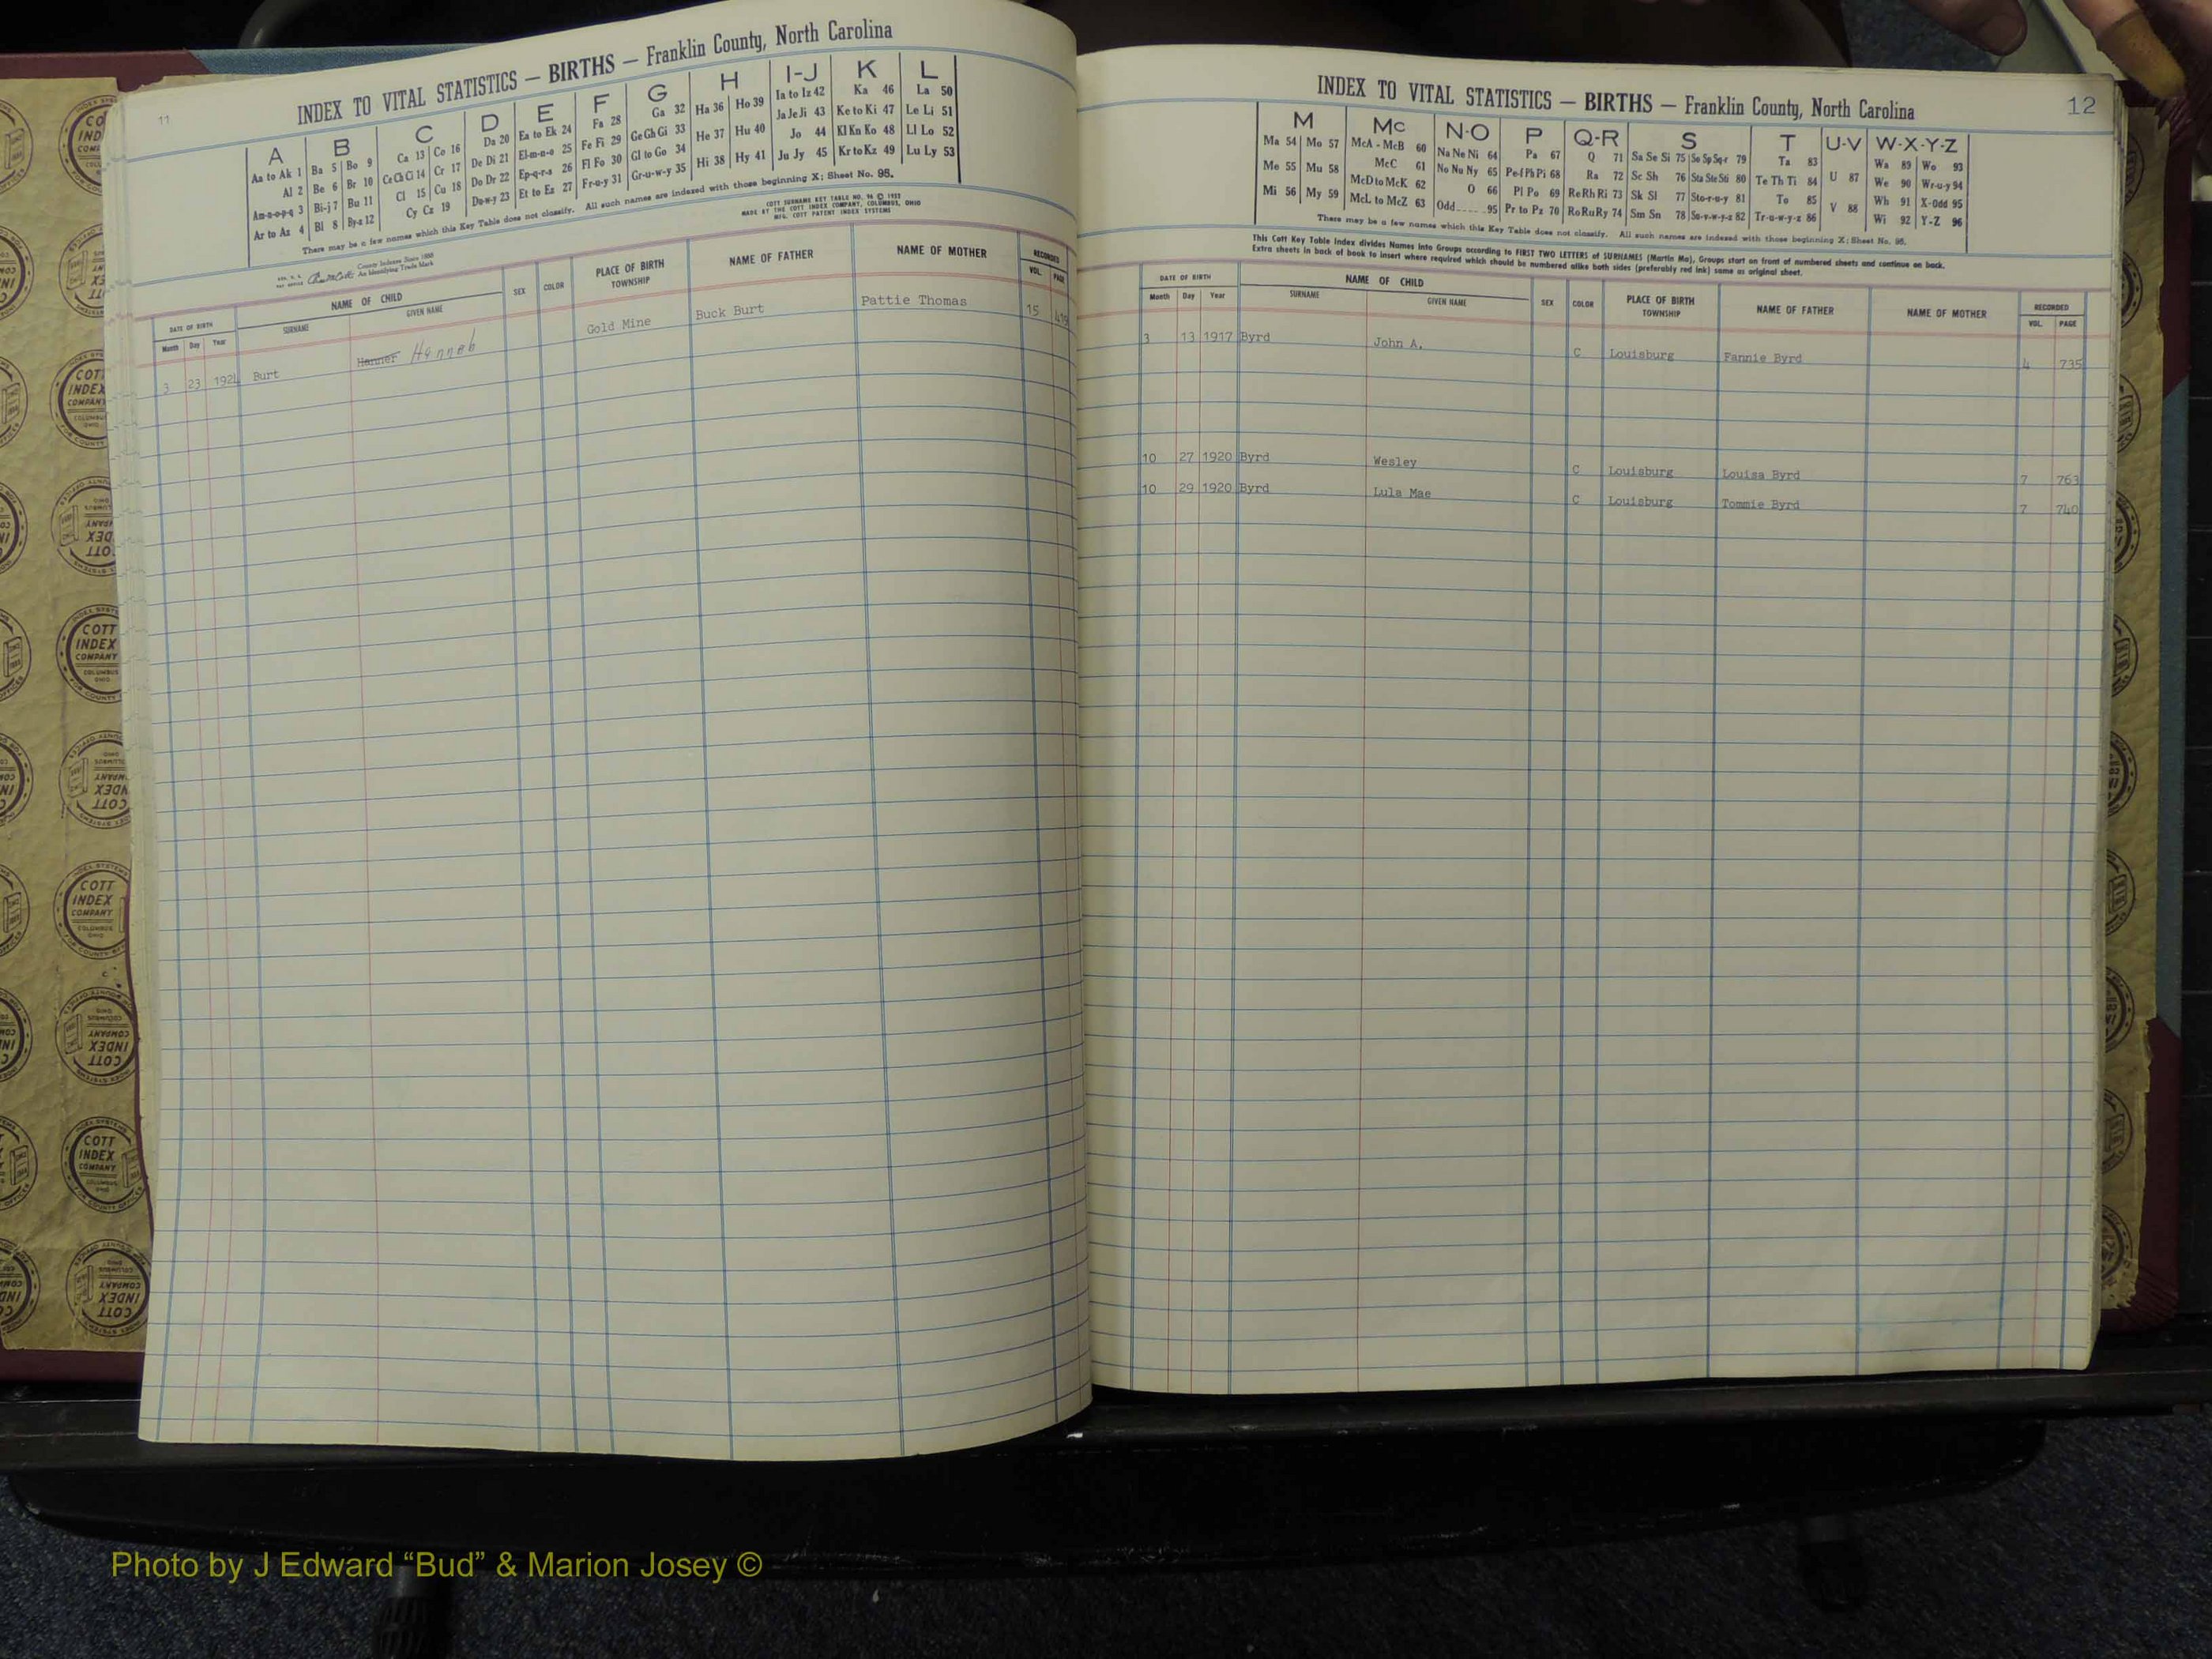 11
INDEX TO VITAL STATISTICS — BIRTHS — Franklin County, North Carolina
A B C D E F G H I-J K L
Aa to Ak 1 Ba 5 Bo 9 Ca 13 Co 16 Da 20 Ea to Ek 24 Fa 28 Ga 32 Ha 36 Ho 39 Ia to Iz 42 Ka 46 La 50
Al 2 Be 6 Br 10 Ce Ch Ci 14 Cr 17 De Di 21 El-m-n-o 25 Fe Fi 29 Ge Gh Gi 33 He 37 Hu 40 Ja Je Ji 43 Ke to Ki 47 Le Li 51
Am-n-o-p-q 3 Bi-j 7 Bu 11 Cl 15 Cu 18 Do Dr 22 Ep-q-r-s 26 Fl Fo 30 Gl to Go 34 Hi 38 Hy 41 Jo 44 Kl Kn Ko 48 Ll Lo 52
Ar to Az 4 Bl 8 By-z 12 Cy Cz 19 Du-w-y 23 Et to Ez 27 Fr-u-y 31 Gr-u-w-y 35 Ju Jy 45 Kr to Kz 49 Lu Ly 53
There may be a few names which this Key Table does not classify. All such names are indexed with those beginning X; Sheet No. 95.
COTT SURNAME KEY TABLE NO. 96 © 1953
MADE BY THE COTT INDEX COMPANY, COLUMBUS, OHIO
MFG. COTT PATENT INDEX SYSTEMS
County Indexes Since 1888
An Identifying Trade Mark
DATE OF BIRTH NAME OF CHILD SEX COLOR PLACE OF BIRTH TOWNSHIP NAME OF FATHER NAME OF MOTHER RECORDED
Month Day Year SURNAME GIVEN NAME VOL. PAGE
3 23 1921 Burt Hanner Hannah Gold Mine Buck Burt Pattie Thomas 15
12
INDEX TO VITAL STATISTICS — BIRTHS — Franklin County, North Carolina
M Mc N-O P Q-R S T U-V W-X-Y-Z
Ma 54 Mo 57 McA - McB 60 Na Ne Ni 64 Pa 67 Q 71 Sa Se Si 75 So Sp Sq-r 79 Ta 83 U 87 Wa 89 Wo 93
Me 55 Mu 58 McC 61 No Nu Ny 65 Pe-f Ph Pi 68 Ra 72 Sc Sh 76 Sta Ste Sti 80 Te Th Ti 84 V 88 We 90 Wr-u-y 94
Mi 56 My 59 McD to McK 62 O 66 Pl Po 69 Re Rh Ri 73 Sk Sl 77 Sto-r-u-y 81 To 85 Wh 91 X-Odd 95
McL to McZ 63 Odd 95 Pr to Pz 70 Ro Ru Ry 74 Sm Sn 78 Su-v-w-y-z 82 Tr-u-w-y-z 86 Wi 92 Y-Z 96
There may be a few names which this Key Table does not classify. All such names are indexed with those beginning X; Sheet No. 95.
This Cott Key Table Index divides Names into Groups according to FIRST TWO LETTERS of SURNAMES (Martin Ma), Groups start on front of numbered sheets and continue on back.
Extra sheets in back of book to insert where required which should be numbered alike both sides (preferably red ink) same as original sheet.
DATE OF BIRTH NAME OF CHILD SEX COLOR PLACE OF BIRTH TOWNSHIP NAME OF FATHER NAME OF MOTHER RECORDED
Month Day Year SURNAME GIVEN NAME VOL. PAGE
3 13 1917 Byrd John A. C Louisburg Fannie Byrd 4 735
10 27 1920 Byrd Wesley C Louisburg Louisa Byrd 7 763
10 29 1920 Byrd Lula Mae C Louisburg Tommie Byrd 7 740
COTT INDEX COMPANY COLUMBUS OHIO
Photo by J Edward “Bud” & Marion Josey ©